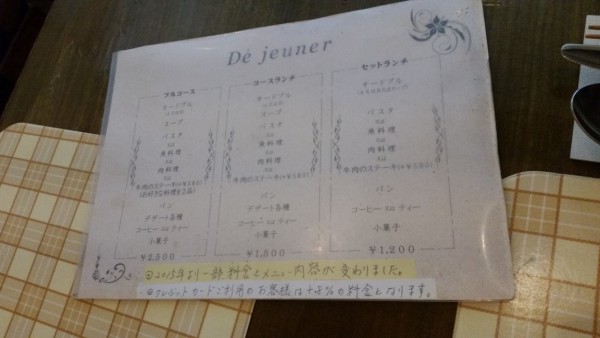 Dé jeuner
フルコース
オードブル
スープ
パスタ
又は
魚料理
又は
肉料理
又は
牛肉のステーキ(+¥380)
(お好きな料理を2品)
パン
デザート各種
コーヒー 又は ティー
小菓子
¥2,500
コースランチ
オードブル
スープ
パスタ
又は
魚料理
又は
肉料理
又は
牛肉のステーキ(+¥380)
パン
デザート各種
コーヒー 又は ティー
小菓子
¥1,500
セットランチ
オードブル
パスタ
又は
魚料理
又は
肉料理
又は
牛肉のステーキ(+¥380)
パン
コーヒー 又は ティー
小菓子
¥1,200
2015年より一部料金とメニュー内容が変わりました。
クレジットカードご利用のお客様は+5%の料金となります。